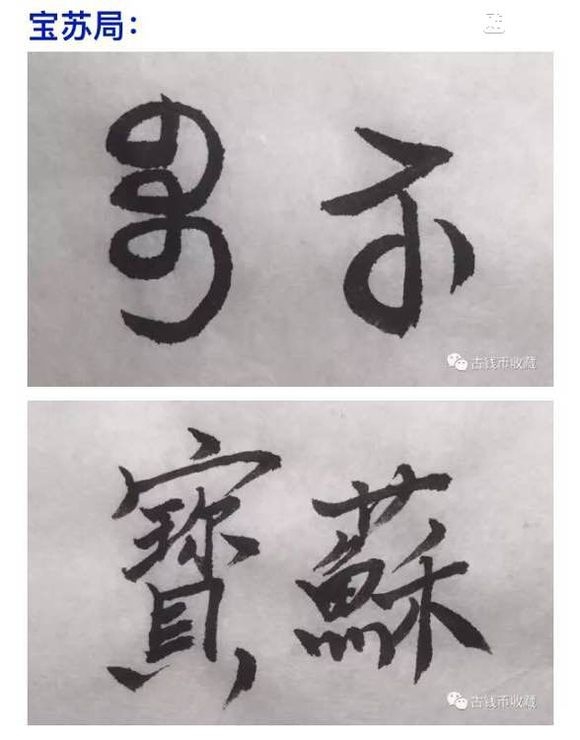 宝苏局：
古钱币收藏
寶蘇
古钱币收藏